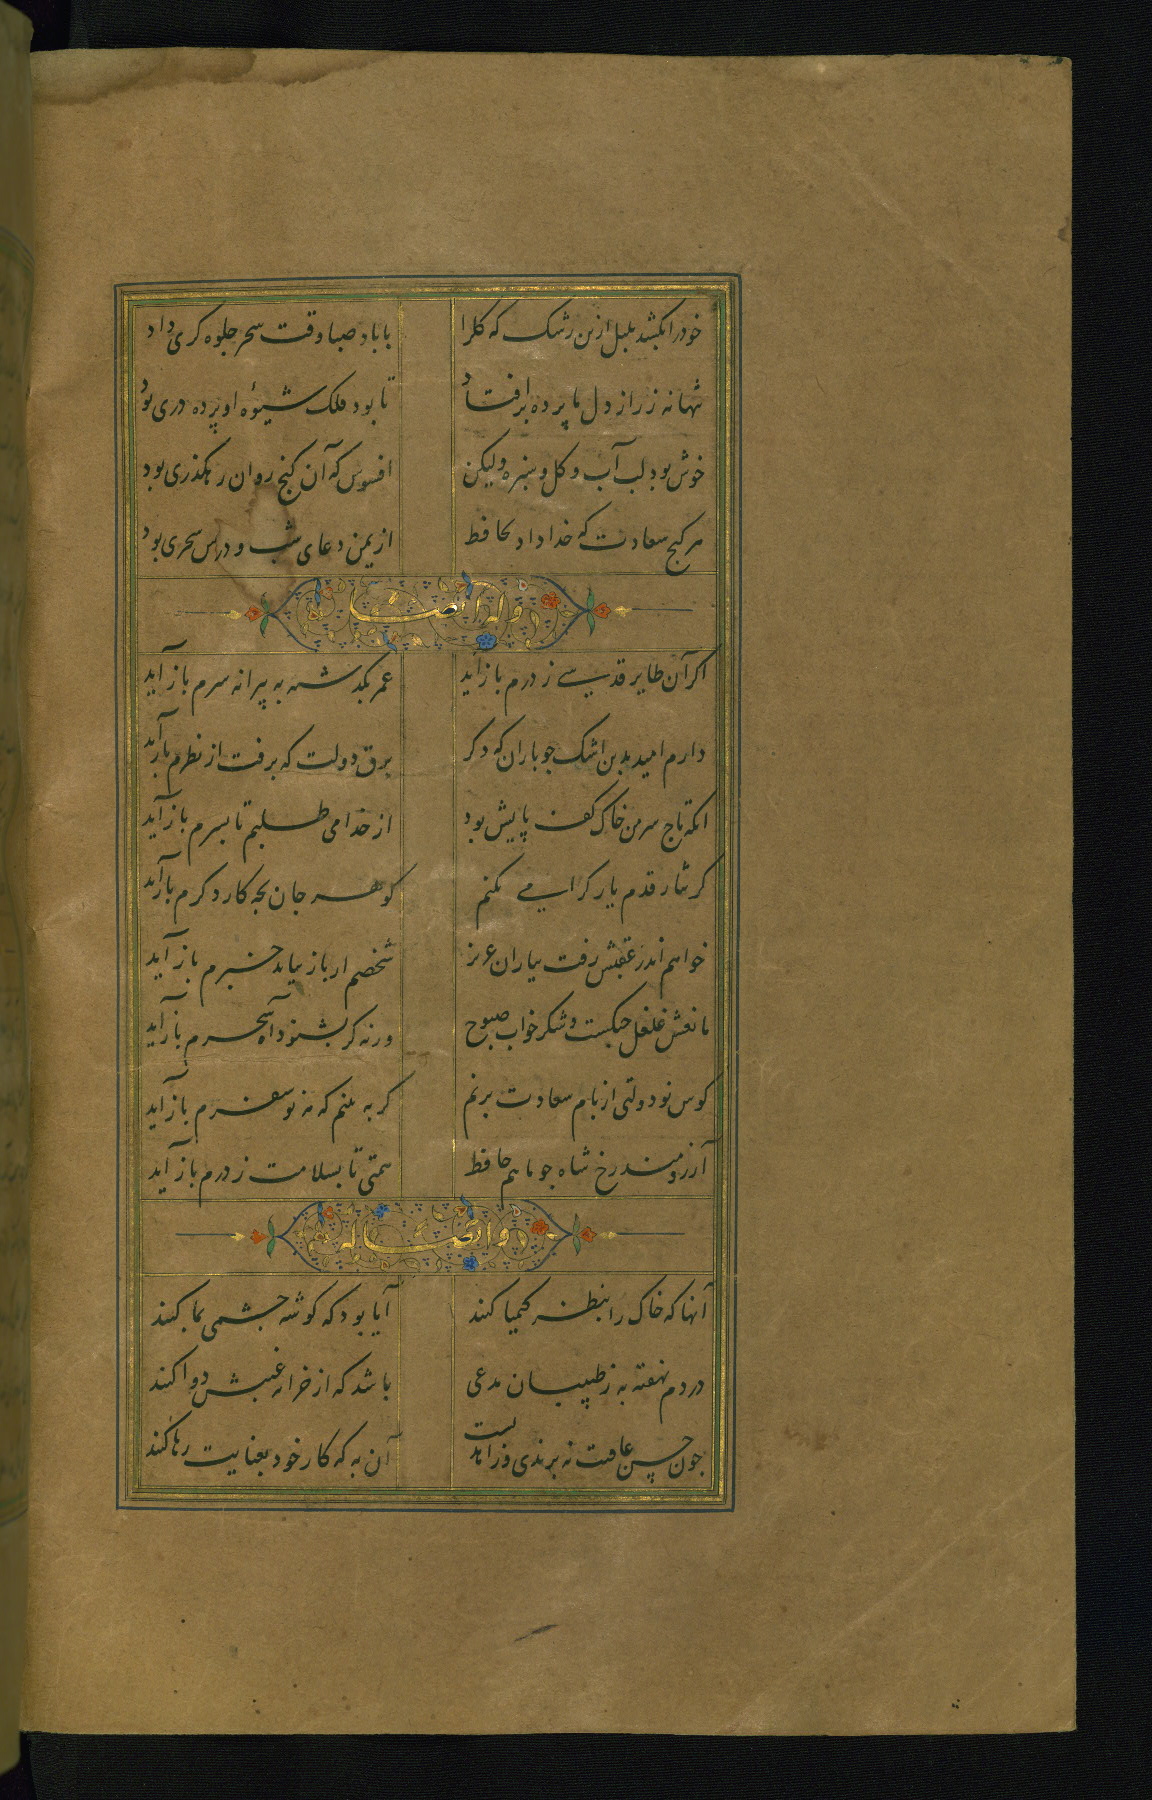 خودرا بکشد بلبل ازین رشک که کلرا باباد صبا وقت سحر جلوه کری داد
تنها نه ز راز دل ما پرده برافتاد تا بود فلک شیوهٔ او پرده دری بود
خوش بود لب آب و کل و سبزه ولیکن افسوس که آن کنج روان رهکذری بود
هر کنج سعادت که خدا داد بحافظ از یمن دعای شب و درس سحری بود
وله ایضا
اکر آن طایر قدسے ز درم باز آید عمر بکذشته به پیرانه سرم باز آید
دارم امید بدین اشک جو باران که دکر برق دولت که برفت از نظرم باز آید
انکه تاج سر من خاک کف پایش بود از خدا می طلبم تا بسرم باز آید
کر نثار قدم یار کرامے نکنم کوهر جان بچه کار دکرم باز آید
خواهم اندر عقبش رفت بیاران عزیز شخصم ار باز نیاید خبرم باز آید
مانعش غلغل جنکست و شکر خواب صبوح ورنه کر بشنود آه سحرم باز آید
کوس نو دولتی از بام سعادت بزنم کر به بینم که مه نو سفرم باز آید
آرزومند رخ شاه جو ماهم حافظ همتی تا بسلامت ز درم باز آید
وایضا له
آنها که خاک را بنظر کیمیا کنند آیا بود که کوشه جشمی بما کنند
دردم نهفته به ز طبیبان مدعی باشد که از خزانه غیبش دوا کنند
جون حسن عاقبت نه برندی و زاهدیست آن به که کار خود بعنایت رها کنند